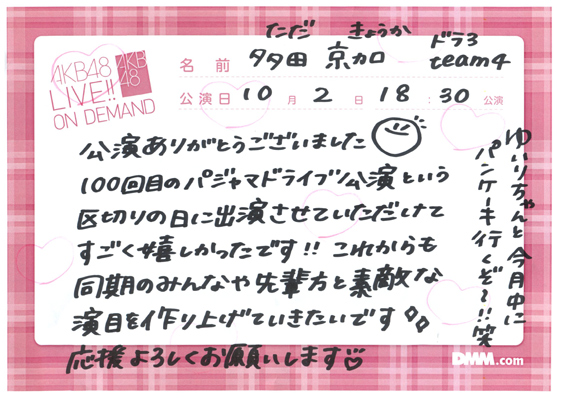 AKB48
LIVE!!
ON DEMAND
AKB
48
ただ きょうか
名前 多田 京加
ドラ3
team4
公演日 10 月 2 日 18 : 30 公演
公演ありがとうございました
100回目のパジャマドライブ公演という
区切りの日に出演させていただけて
すごく嬉しかったです!! これからも
同期のみんなや先輩方と素敵な
演目を作り上げていきたいです
応援よろしくお願いします
ゆいりちゃんと今月中に
パンケーキ行くぞ〜!!笑
DMM.com